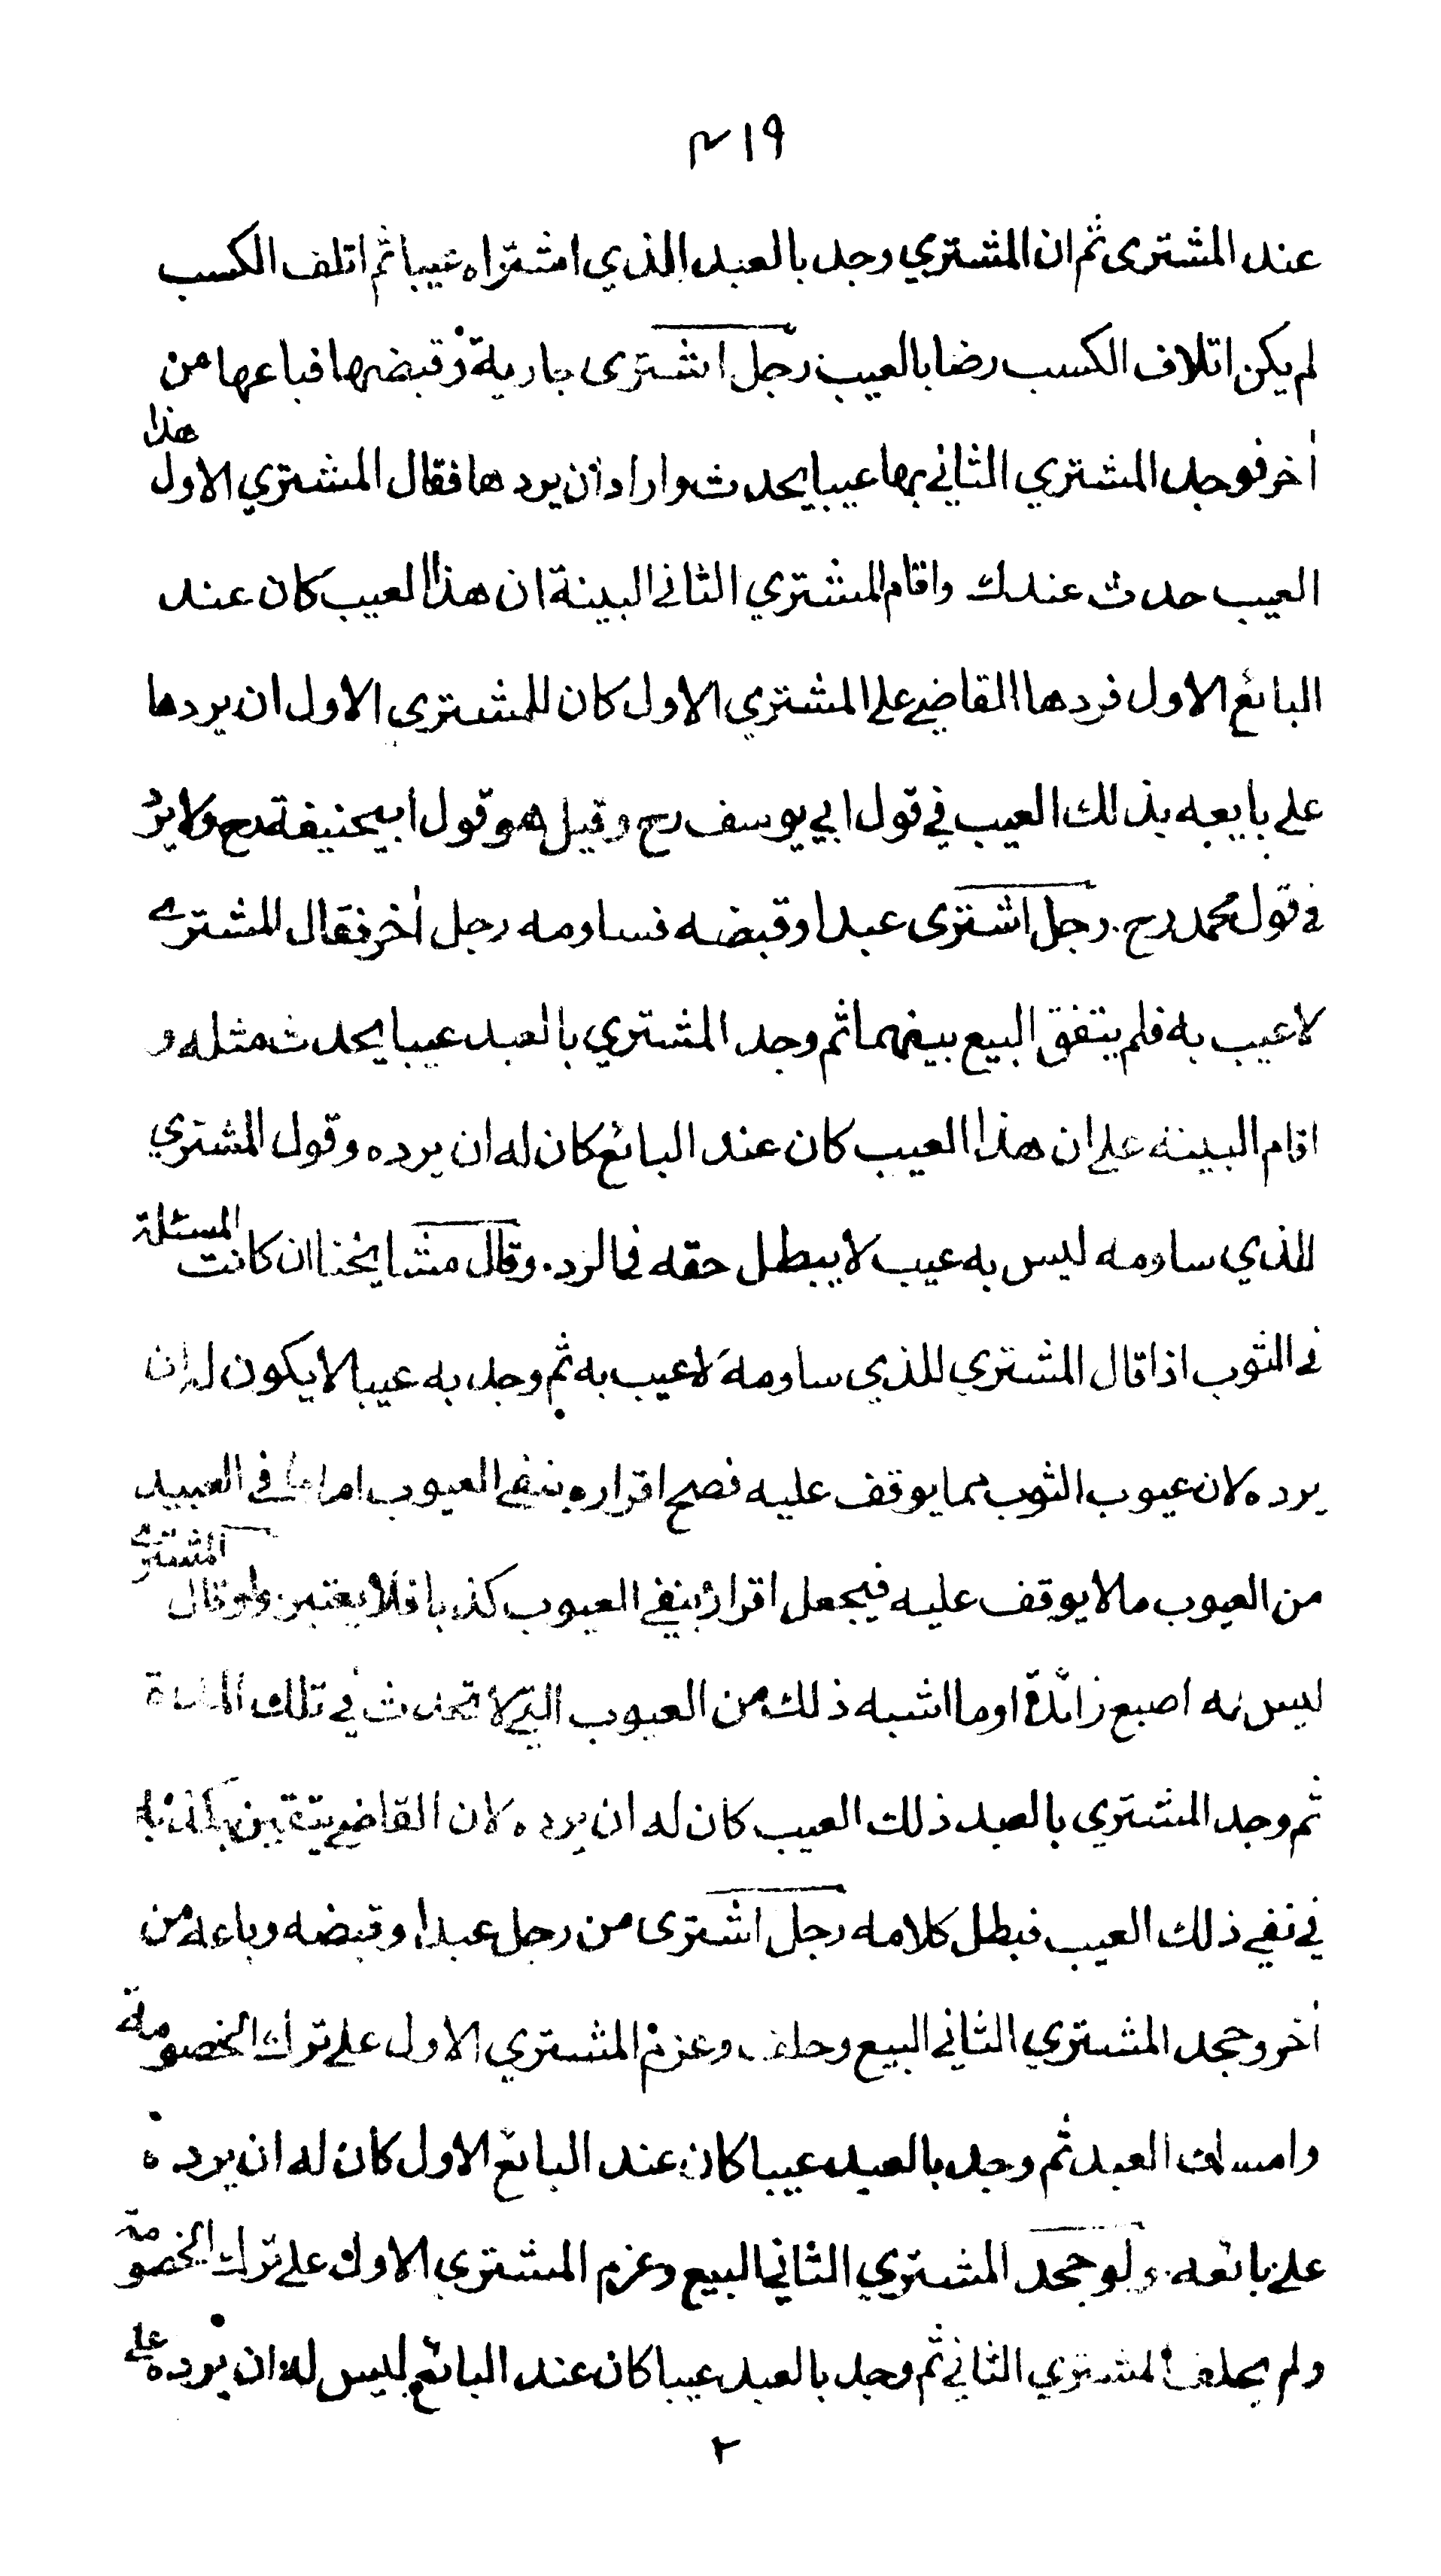 ٣١٩
عند المشترى ثم ان المشتري وجد بالعبد الذي اشتراه عيبا ثم اتلف الكسب
لم يكن اتلاف الكسب رضا بالعيب رجل اشترى جارية وقبضها فباعها من
أخر فوجد المشتري الثاني بها عيبا يحدث واراد ان يردها فقال المشتري الاول هذا
العيب حدث عندك واقام المشتري الثاني البينة ان هذا العيب كان عند
البائع الاول فردها القاضي على المشتري الاول كان للمشتري الاول ان يردها
على بايعه بذلك العيب في قول ابي يوسف رح وقيل هو قول ابيحنيفة رح ولا يرد
في قول محمد رح. رجل اشترى عبدا وقبضه فساومه رجل أخر فقال المشتري
لا عيب به فلم يتفق البيع بينهما ثم وجد المشتري بالعبد عيبا يحدث مثله و
اقام البينة على ان هذا العيب كان عند البائع كان له ان يرده وقول المشتري
للذي ساومه ليس به عيب لا يبطل حقه في الرد. وقال مشايخنا ان كانت المسئلة
في الثوب اذا قال المشتري للذي ساومه لا عيب به ثم وجد به عيبا لا يكون له ان
يرده لان عيوب الثوب مما يوقف عليه فصح اقراره بنفي العيوب اما في العبيد
من العيوب ما لا يوقف عليه فيجعل اقراره بنفي العيوب كذبا فلا يعتبر ولو قال المشتري
ليس به اصبع زائدة او ما اشبه ذلك من العيوب التي لا تحدث في تلك المدة
ثم وجد المشتري بالعبد ذلك العيب كان له ان يرده لان القاضي يتيقن بكذبه
في نفي ذلك العيب فبطل كلامه رجل اشترى من رجل عبدا وقبضه وباعه من
أخر وجحد المشتري الثاني البيع وحلف وعزم المشتري الاول على ترك الخصومة
وامسك العبد ثم وجد بالعبد عيبا كان عند البائع الاول كان له ان يرده
على بائعه. ولو جحد المشتري الثاني البيع وعزم المشتري الاول على ترك الخصومة
ولم يحلف المشتري الثاني ثم وجد بالعبد عيبا كان عند البائع ليس له ان يرده على
٢